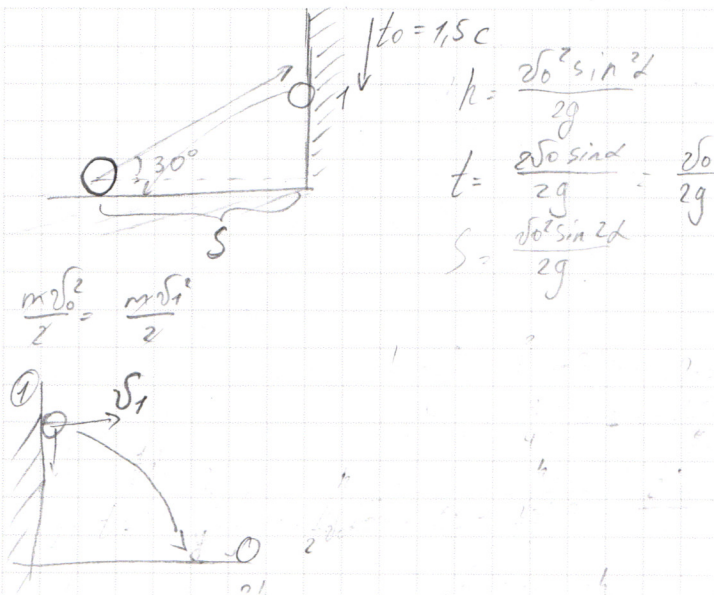 t₀ = 1,5 с
1
h = v₀² sin²α / 2g
30°
t = 2v₀ sinα / 2g = v₀ / 2g
S
S = v₀² sin 2α / 2g
mv₀² / 2 = mv₁² / 2
①
v₁